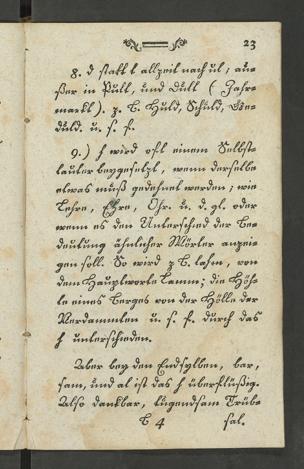 23
8. d statt t allzeit nach ul; aus-
ser in Pult, und Dult (Jahr-
markt). z. B. Huld, Schuld, Ge-
duld. u. s. f.
9.) h wird oft einem Selbst-
lauter beygesetzt, wenn derselbe
etwas muß gedehnet werden; wie
Lehre, Ehre, Ohr. u. d. gl. oder
wenn es den Unterschied der Be-
deutung ähnlicher Wörter anzei-
gen soll. So wird z B. lahm, von
dem Hauptworte Lamm; die Höh-
le eines Berges von der Hölle der
Verdammten u. s. f. durch das
h unterschieden.
Aber bey den Endsylben, bar,
sam, und al ist das h überflüßig.
Also dankbar, tugendsam Trüb-
B 4 sal.